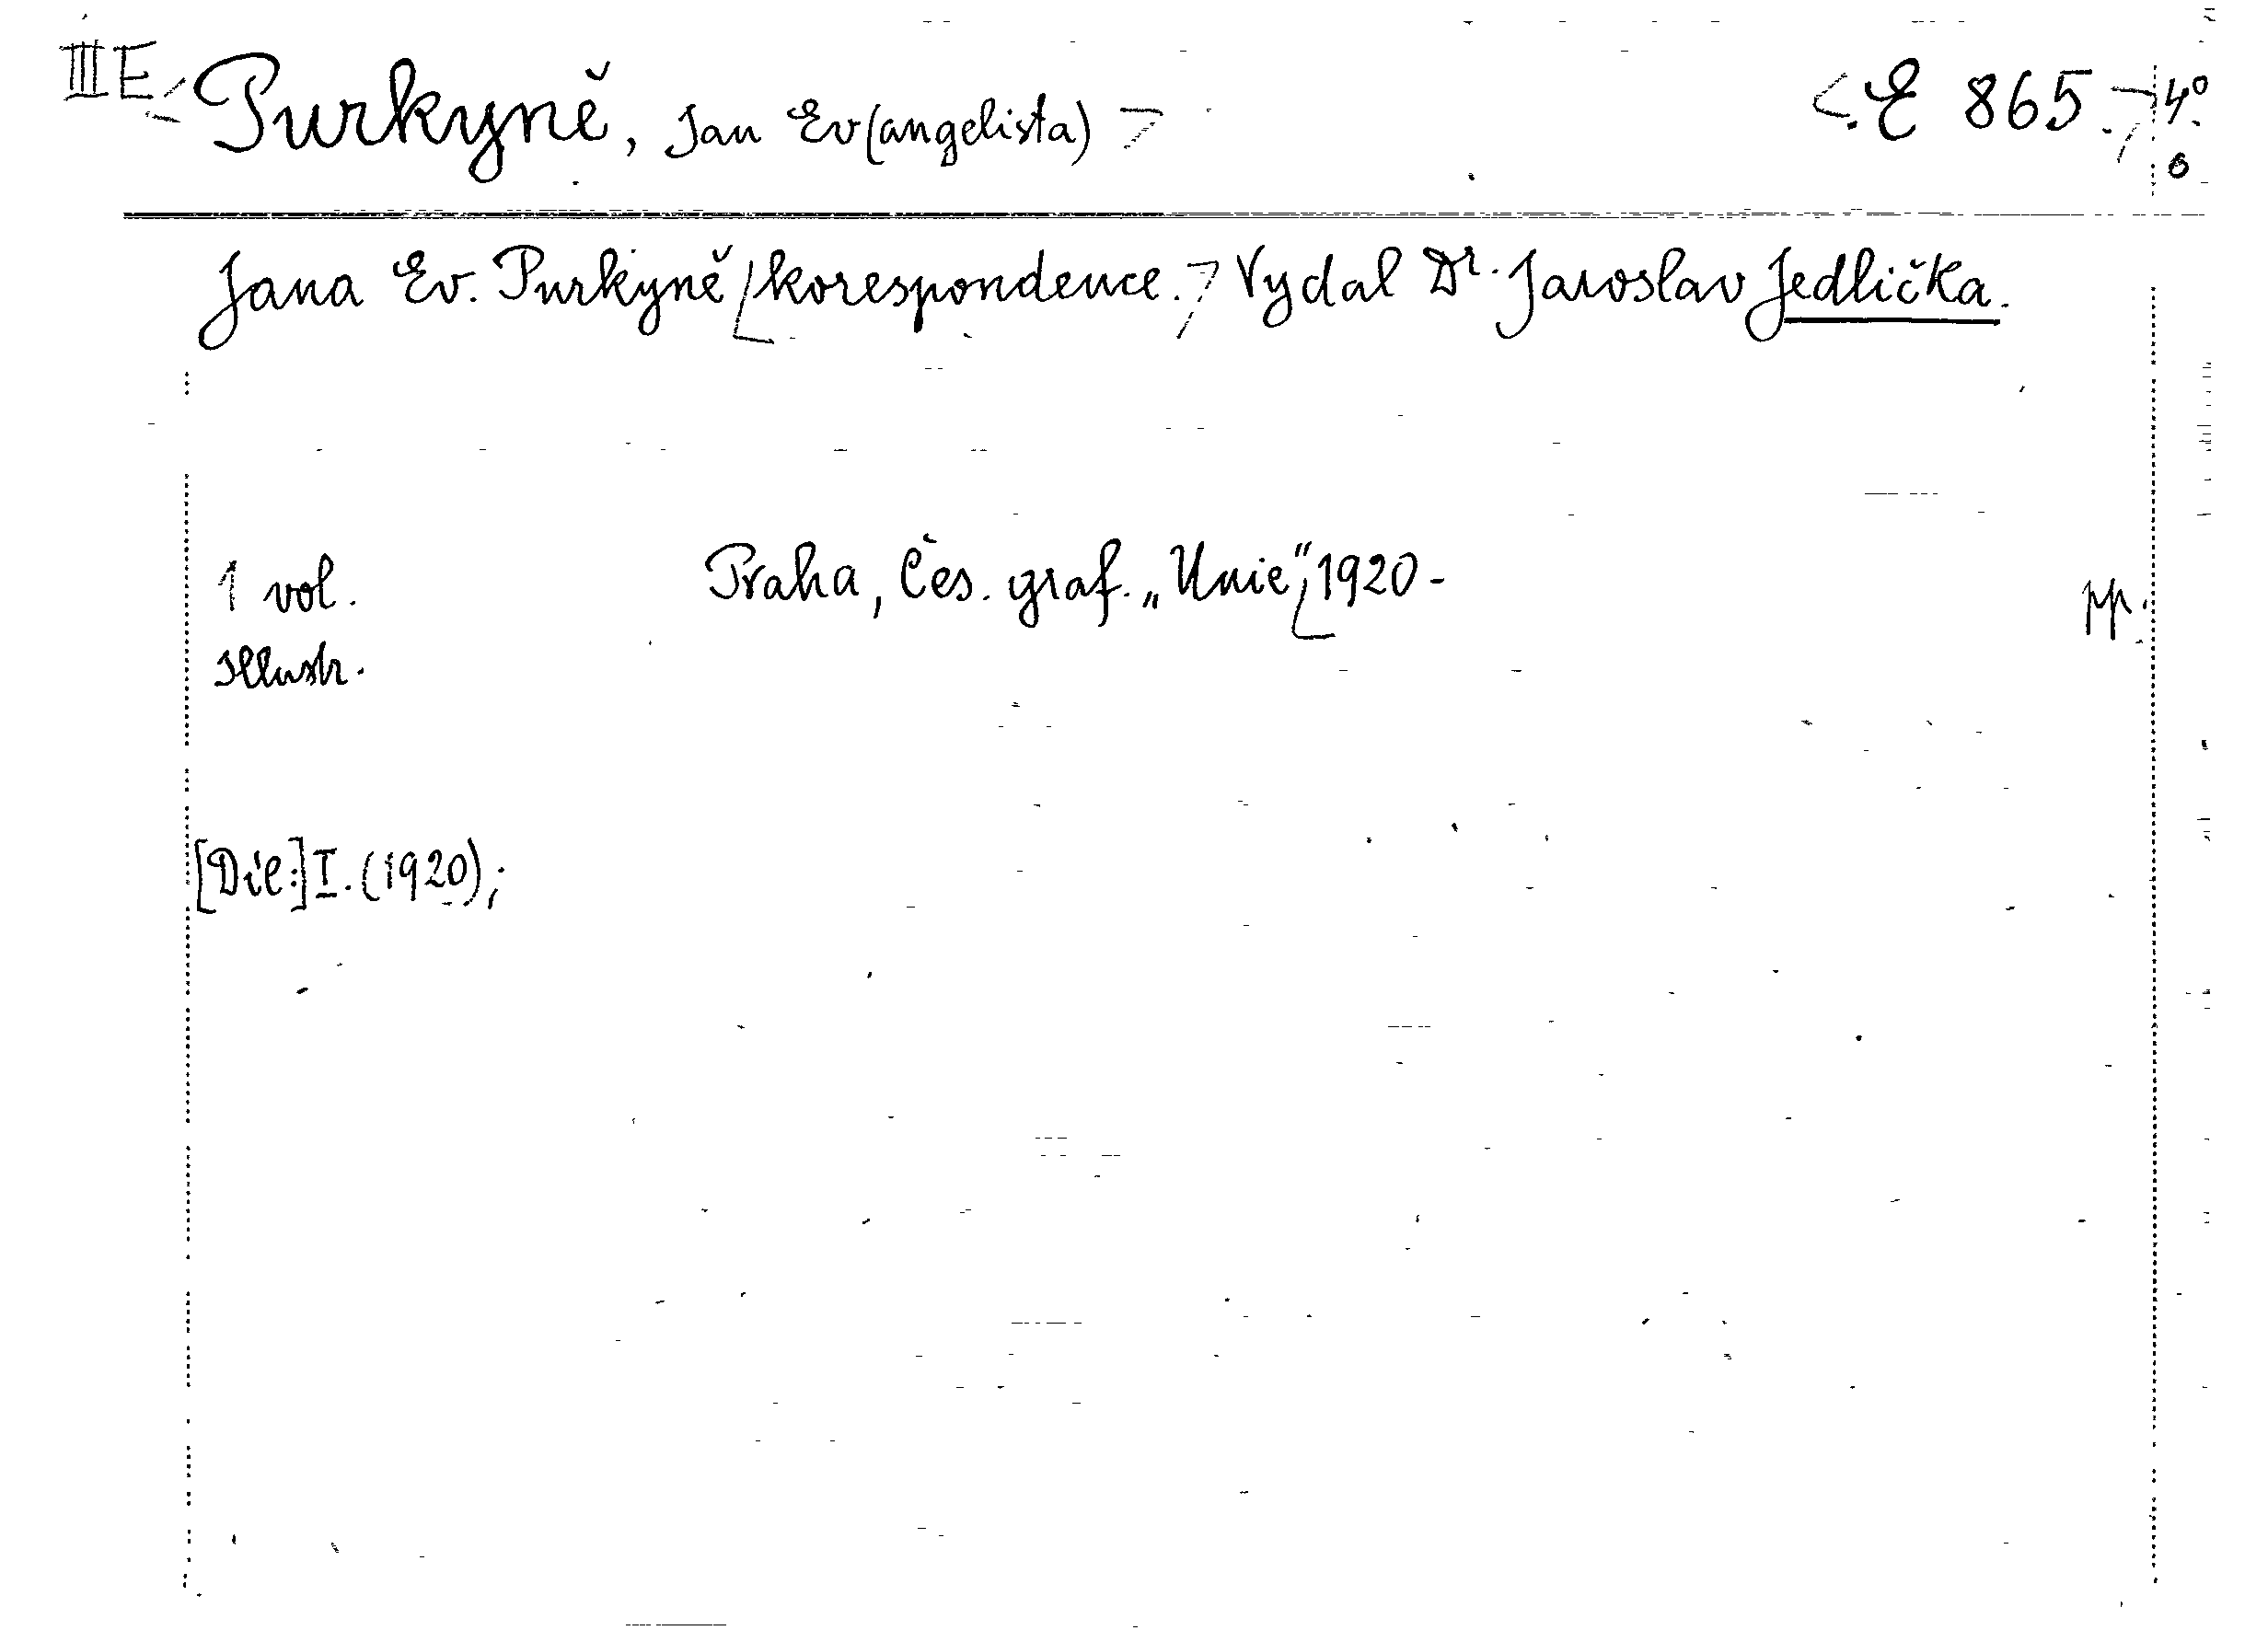 III E Purkyně, Jan Ev(angelista) E 865. 4º
Jana Ev. Purkyně korespondence. Vydal Dr. Jaroslav Jedlička.
1 vol. Praha, Čes. graf. „Unie“, 1920- pp.
Illustr.
[Díl:] I. (1920);